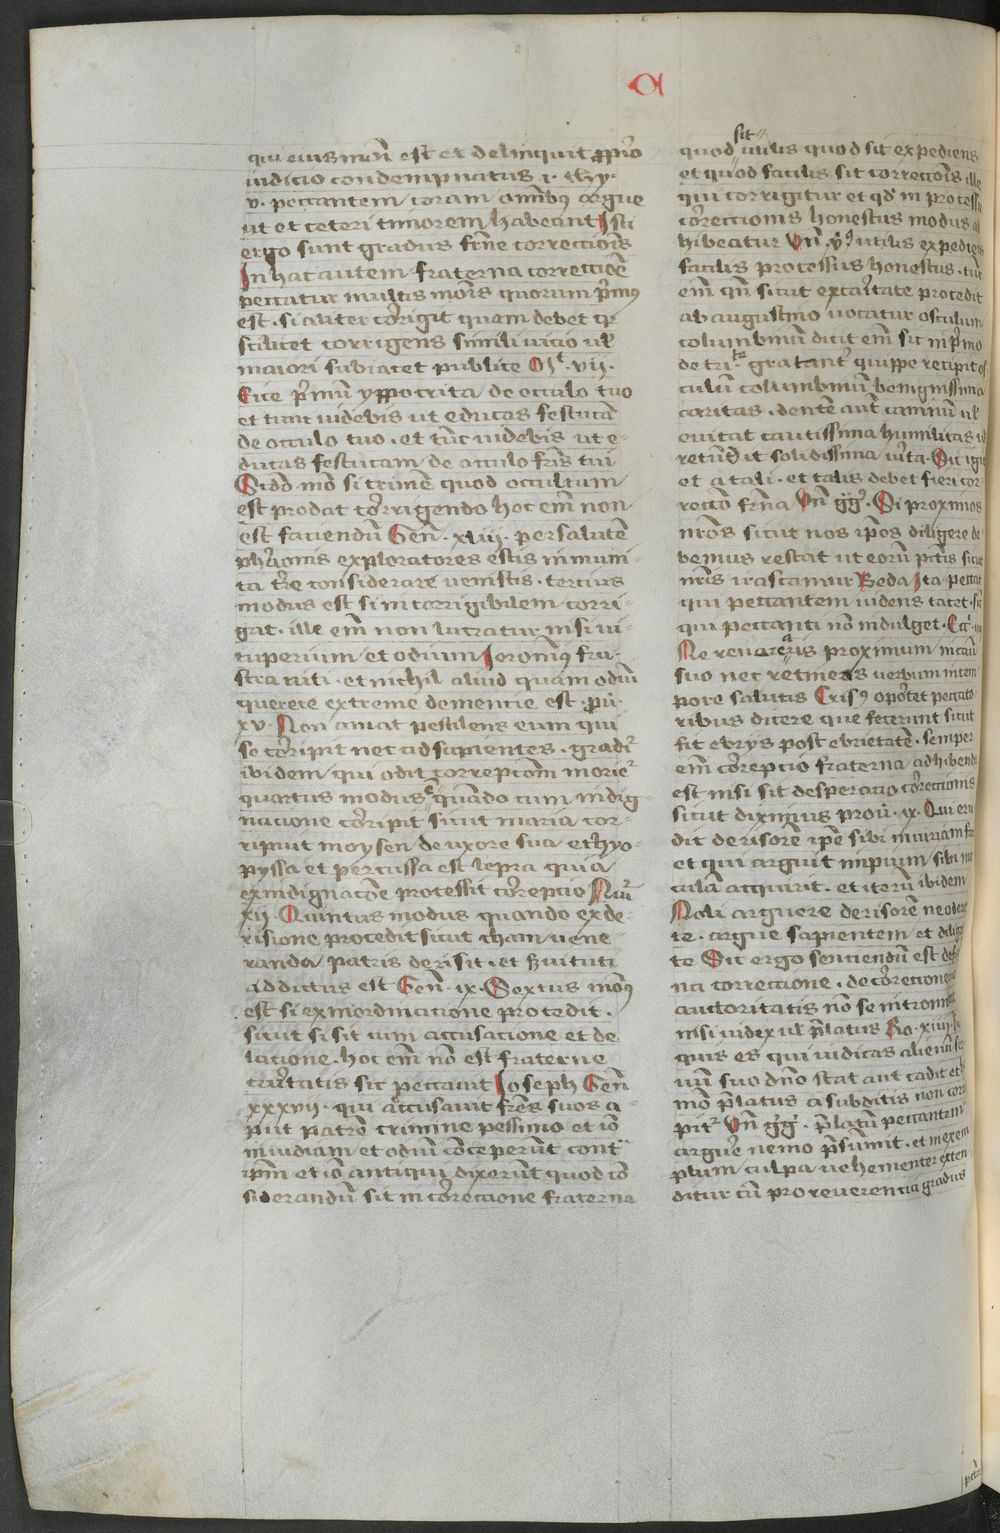 a
qui eiusmōi est et delinquit ꝓprio
iudicio condempnatus · i · thy ·
v · peccantem coram omībus argue
ut et ceteri timorem habeant Isti
ergo sunt gradus frīne correctiōīs
In hac autem fraterna correctiōe
peccatur multis mōis quorum prīmus
est · si aliter corrigit quam debet qr
scilicet corrigens simili uicio ul
maiori subiacet publice Mt · vii ·
Eice prīmū yppocrita de occulo tuo
et tunc uidebis ut educas festucā
de occulo tuo · et tūc uidebis ut e-
ducas festucam de occulo frīs tui
Scdo mō si crimē quod occultum
est prodat corrigendo hoc em̄ non
est faciendū Gen̄ · xliii · per salutē
pharaonis exploratores estis in muni
ta terre considerare uenistis · tercius
modus est si incorrigibilem corri-
gat · ille em̄ non lucratur nisi ui-
tuperium et odium Ieronim9 fru-
stra niti · et nichil aliud quam odiū
querere extreme demencie est · pu ·
xv · Non amat pestilens eum qui
se corripit nec ad sapientes · gradit
ibidem qui odit correptiōm moriet
quartus modus e quādo cum indig-
nacione corripit sunt maria cor-
ripuit moysen de uxore sua ethyo-
pyssa et percussa est lepra quia
ex indignacōe processit correpcio Nūi
xii · Quintus modus quando ex de-
risione procedit sicut cham uene-
randa patris derisit · et seruituti
addictus est Gen̄ · ix · Sextus mod9
est si ex inordinacione procedit ·
sicut si sit cum accusacione et de
lacione · hoc em̄ nō est fraterne
caritatis sic peccauit Ioseph Gen̄
xxxvii · qui accusauit frēs suos a
put patrē crimine pessimo et iō
inuidiam et odiū cōceperūt contra
ipm̄ et iō antiqui dixerūt quod cō
siderandū sit in correctione fraterna
quod sit utilis quod sit expediens
et quod facilis sit correctiōis ille
qui corrigitur et qd in processu
correctionis honestus modus ad
hibeatur Vn̄ v9 utilis expediens
facilis processus honestus · tūc
em̄ qn̄ sicut ex caritate procedit
ab augustino uocatur osculum
columbinū dicit em̄ sic in primo
de tri · gratant quippe recipit os
culū columbinū benignissima
caritas · dentē aūt caninū ul
euitat cautissima humilitas ul
retūdit solidissima uirta · Sic igit
et a tali · et talis debet fieri cor-
rectō frīna Vn̄ gg · Si proximos
nrōs sicut nos ipōs diligere de
bemus restat ut eorū pctīs sicut
nrīs irascamur Beda Ita peccat
qui peccantem uidens tacet · sic
qui peccanti nō indulget · Ecc ·
Ne reuerearis proximum in casu
suo nec retineas uerbum in tem
pore salutis Cris9 oportet peccato
ribus dicere que fecerunt sicut
fit ebrys post ebrietatē · semper
em̄ correpcio fraterna adhibenda
est nisi sit desperacio correctionis
sicut diximus prou · ix · Qui eru
dit derisorē ipe sibi iniuriam fa
et qui arguit impium sibi ma
culā acquirit · et iterū ibidem
Noli arguere derisorē ne oderit
te · argue sapientem et diliget
te Sic ergo senciendū est de fr
na correctione · de correctione
auctoritatis nō se intromittat
nisi iudex ul prelatus Ro · xiiii · tu
quis es qui iudicas alienū ser
uū suo dnō stat aut cadit et
mō prelatus a subditis non cori
pit Vn̄ gg · prelatū peccantem
arguere nemo presūmit · et in exem
plum culpa uehementer exten-
ditur cū pro reuerencia gradus